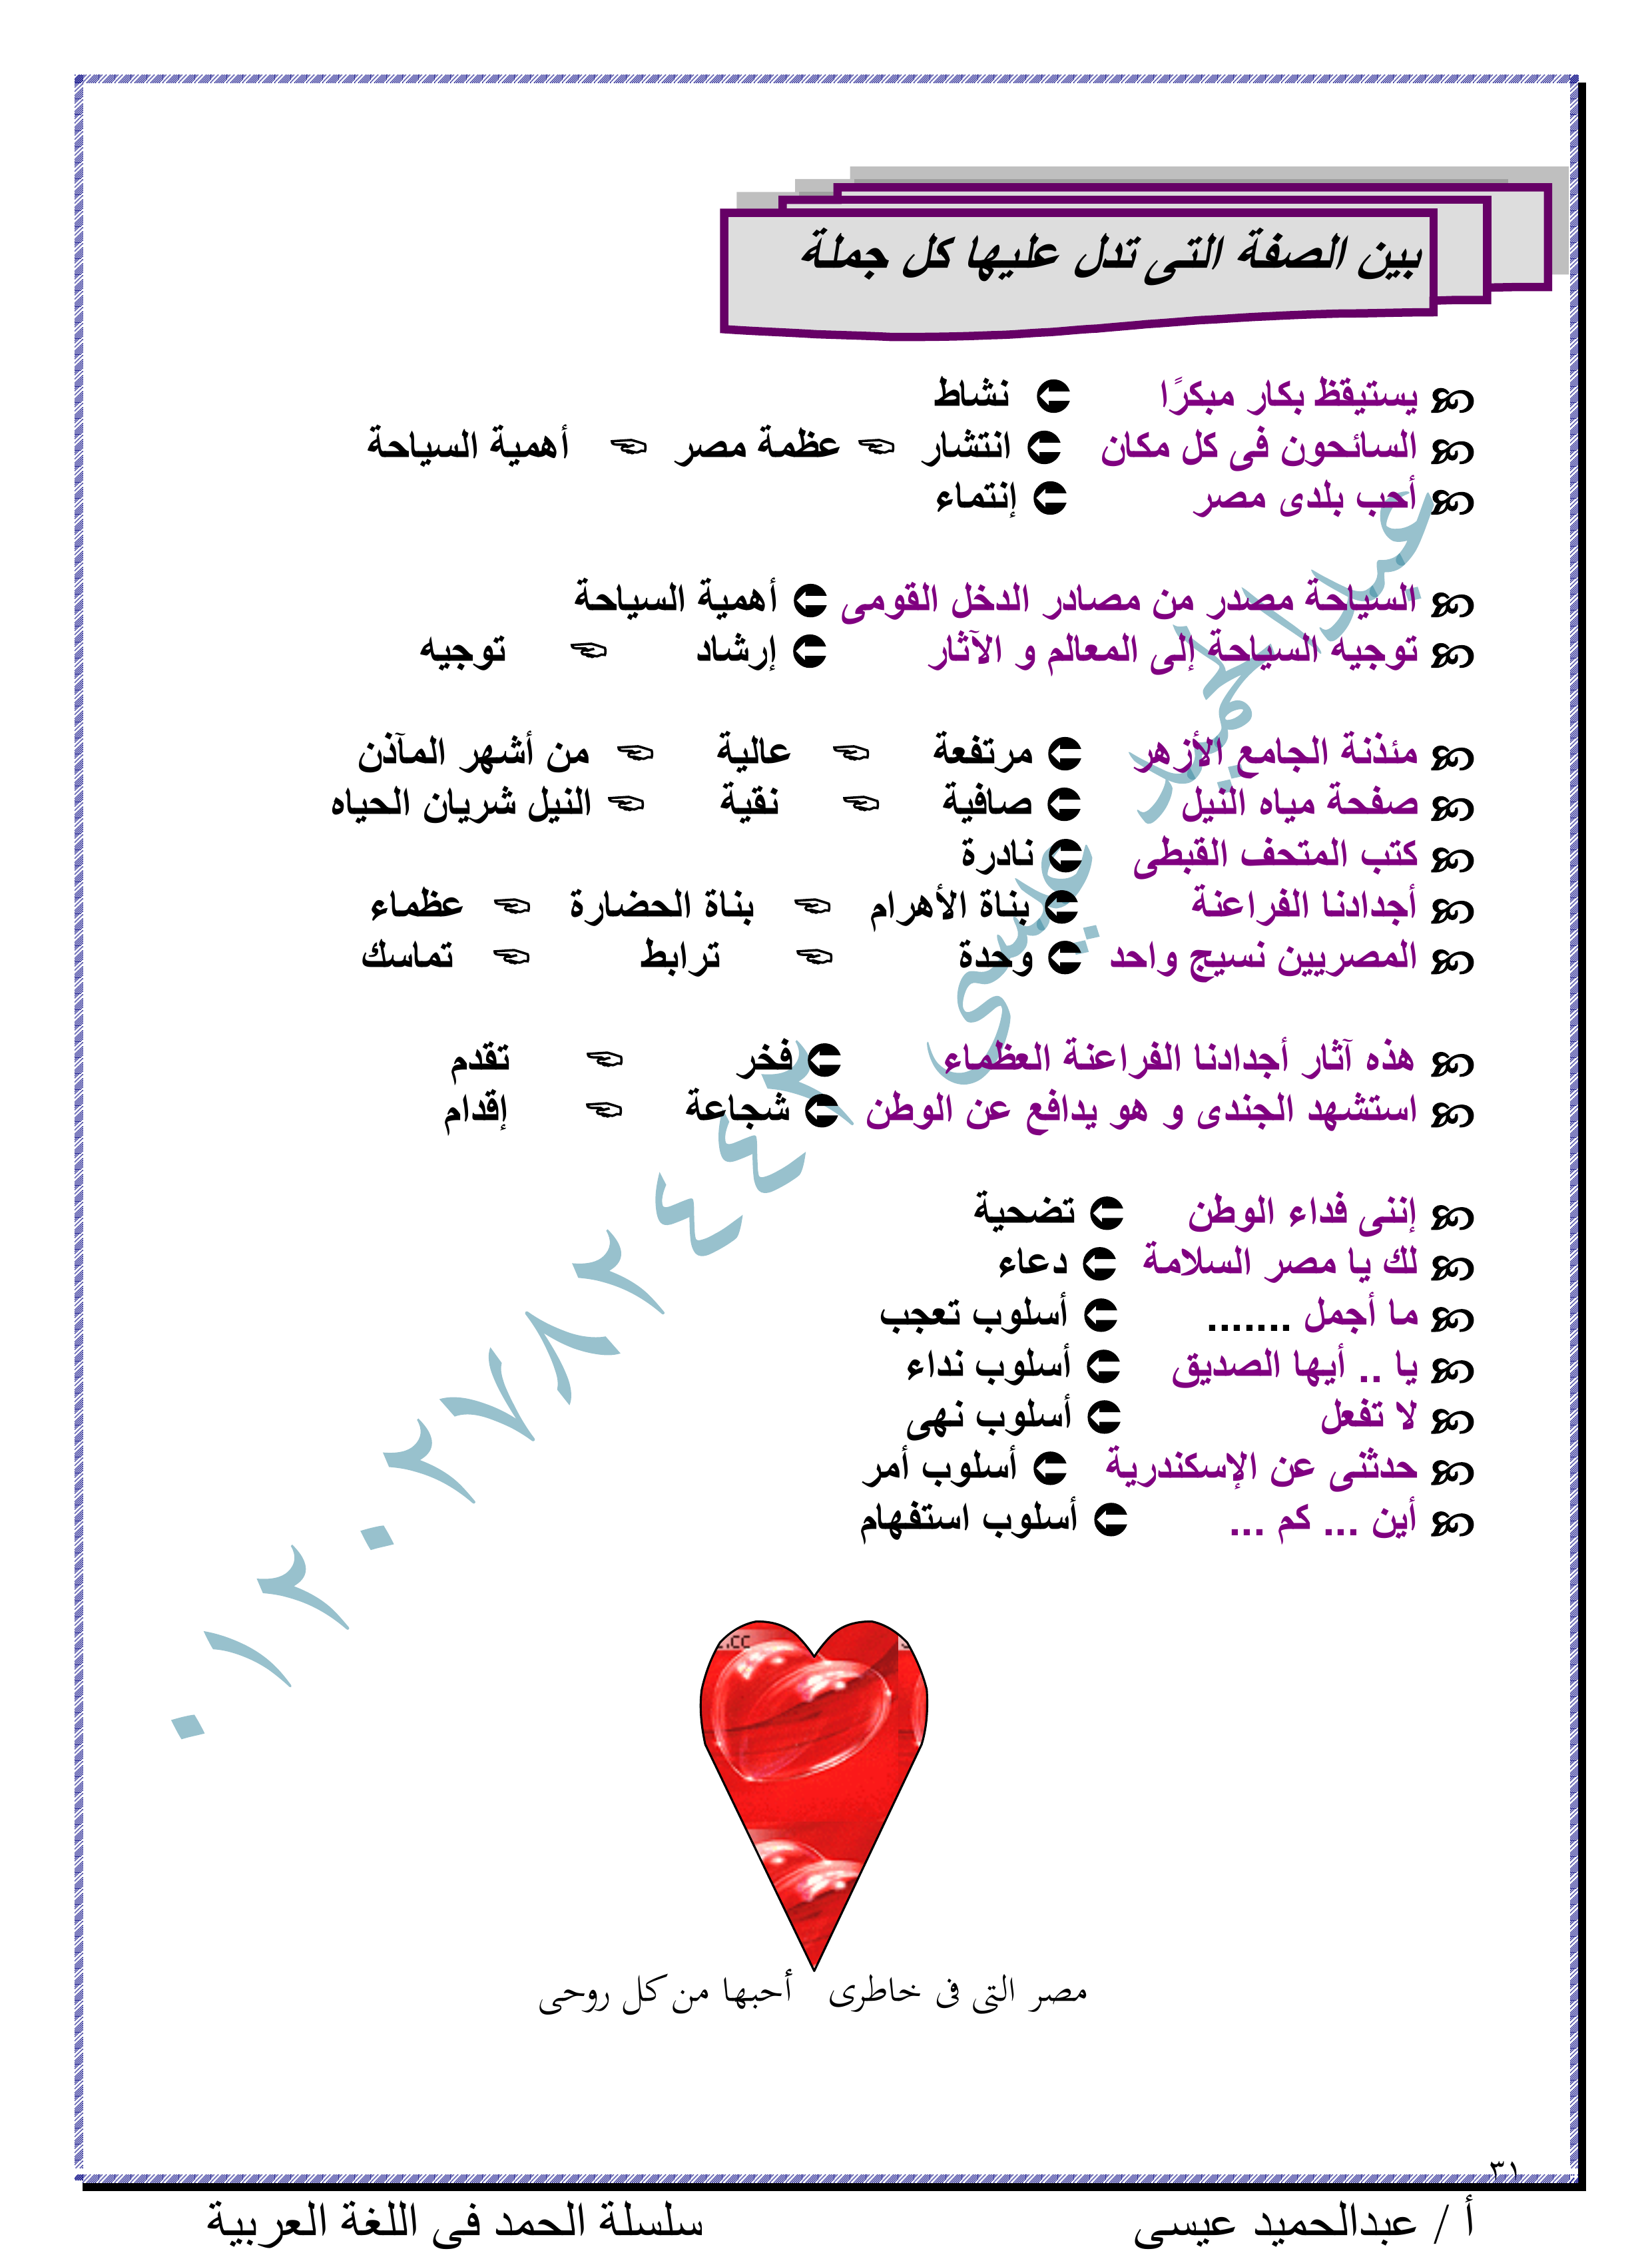 بين الصفة التى تدل عليها كل جملة
يستيقظ بكار مبكرًا نشاط
السائحون فى كل مكان انتشار عظمة مصر أهمية السياحة
أحب بلدى مصر إنتماء
السياحة مصدر من مصادر الدخل القومى أهمية السياحة
توجيه السياحة إلى المعالم و الآثار إرشاد توجيه
مئذنة الجامع الأزهر مرتفعة عالية من أشهر المآذن
صفحة مياه النيل صافية نقية النيل شريان الحياه
كتب المتحف القبطى نادرة
أجدادنا الفراعنة بناة الأهرام بناة الحضارة عظماء
المصريين نسيج واحد وحدة ترابط تماسك
هذه آثار أجدادنا الفراعنة العظماء فخر تقدم
استشهد الجندى و هو يدافع عن الوطن شجاعة إقدام
إننى فداء الوطن تضحية
لك يا مصر السلامة دعاء
ما أجمل ....... أسلوب تعجب
يا .. أيها الصديق أسلوب نداء
لا تفعل أسلوب نهى
حدثنى عن الإسكندرية أسلوب أمر
أين ... كم ... أسلوب استفهام
عبدالحميد عيسى ٠١٢٠٢٧٨٢٤٤٢
.cc
مصر التى فى خاطرى أحبها من كل روحى
٣١
أ / عبدالحميد عيسى سلسلة الحمد فى اللغة العربية